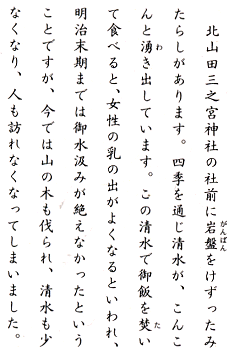 北山田三之宮神社の社前に岩盤をけずったみ
たらしがあります。四季を通じ清水が、こんこ
んと湧き出しています。この清水で御飯を焚い
て食べると、女性の乳の出がよくなるといわれ、
明治末期までは御水汲みが絶えなかったという
ことですが、今では山の木も伐られ、清水も少
なくなり、人も訪れなくなってしまいました。